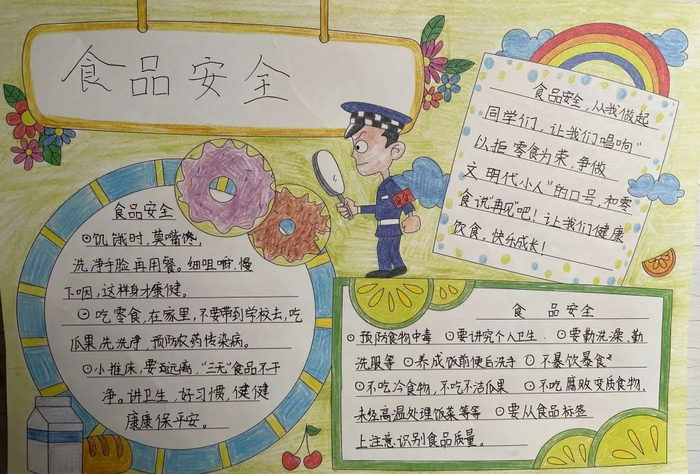 食品安全
食品安全
⊙饥饿时,莫嘴馋,
洗净手脸再用餐。细咀嚼,慢
下咽,这样身才康健。
⊙吃零食,在家里,不要带到学校去,吃
瓜果,先洗净,预防农药传染病。
⊙小摊床,要远离,“三无”食品不干
净。讲卫生,好习惯,健健
康康保平安。
食品安全,从我做起
同学们,让我们唱响“
以拒零食为荣,争做
文明代小人”的口号,和零
食说再见吧!让我们健康
饮食,快乐成长!
食品安全
⊙预防食物中毒 ⊙要讲究个人卫生. ⊙要勤洗澡、勤
洗服等 ⊙养成饭前便后洗手 ⊙不暴饮暴食
⊙不吃冷食物,不吃不洁瓜果 ⊙不吃腐败变质食物、
未经高温处理饭菜等等 ⊙要从食品标签
上注意识别食品质量。